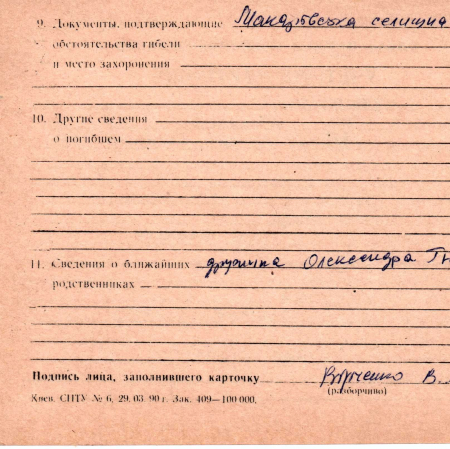 9. Документы, подтверждающие Макарівська селищна
обстоятельства гибели
и место захоронения
10. Другие сведения
о погибшем
11. Сведения о ближайших дружина Олександра
родственниках
Подпись лица, заполнившего карточку В.
(разборчиво)
Киев. СПТУ № 6, 29. 03. 90 г. Зак. 409—100 000.